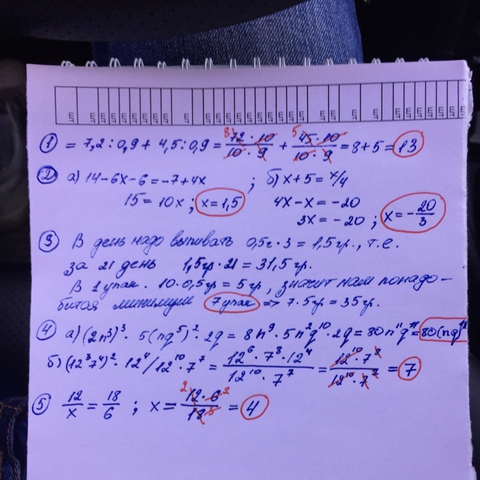 ① = 7,2 : 0,9 + 4,5 : 0,9 = 72·10/10·9 + 45·10/10·9 = 8 + 5 = 13
② а) 14-6x-6=-7+4x ; б) x+5 = x/4
15 = 10x ; x=1,5 4x-x = -20
3x = -20 ; x = -20/3
③ В день надо выпивать 0,5г · 3 = 1,5гр., т.е.
за 21 день 1,5гр · 21 = 31,5гр.
В 1 упак. 10·0,5гр = 5гр, значит нам понадо-
бится минимум 7 упак => 7·5гр = 35гр.
④ а) (2n³)³ · 5(nq⁵)² · 2q = 8n⁹ · 5n²q¹⁰ · 2q = 80n¹¹q¹¹ = 80(nq)¹¹
б) (12³7⁴)² · 12⁴/12¹⁰ · 7⁷ = 12⁶ · 7⁸ · 12⁴/12¹⁰ · 7⁷ = 12¹⁰ · 7⁸/12¹⁰ · 7⁷ = 7
⑤ 12/x = 18/6 ; x = 12·6/18 = 4